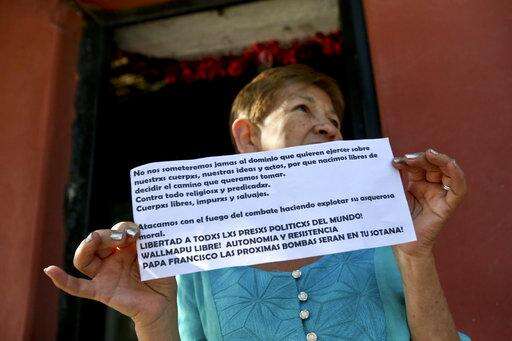 No nos someteremos jamas al dominio que quieren ejercer sobre
nuestrxs cuerpxs, nuestras ideas y actos, por que nacimos libres de
decidir el camino que queramos tomar.
Contra todo religiosx y predicadxr.
Cuerpxs libres, impurxs y salvajes.
Atacamos con el fuego del combate haciendo explotar su asquerosa
moral.
LIBERTAD A TODXS LXS PRESXS POLITICXS DEL MUNDO!
WALLMAPU LIBRE! AUTONOMIA Y RESISTENCIA
PAPA FRANCISCO LAS PROXIMAS BOMBAS SERAN EN TU SOTANA!